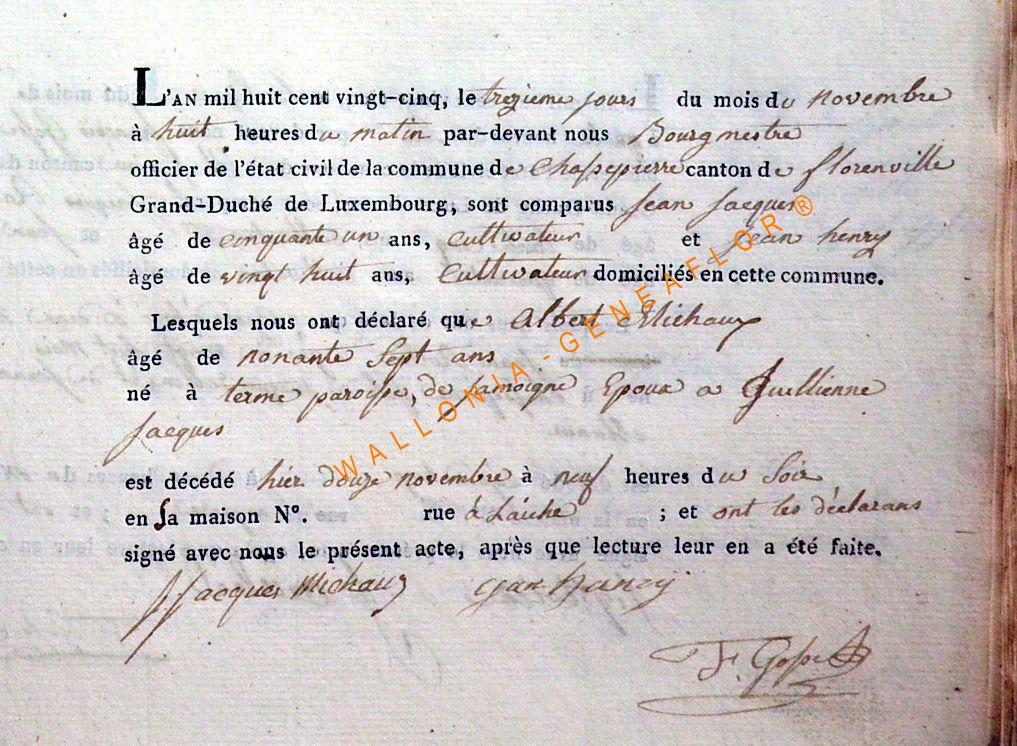 L'AN mil huit cent vingt-cinq, le trezieme jours du mois du novembre
à huit heures du matin par-devant nous Bourgmestre
officier de l'état civil de la commune de Chassepierre canton de florenville
Grand-Duché de Luxembourg, sont comparus Jean Jacques
âgé de cinquante un ans, Cultivateur et jean henry
âgé de vingt huit ans, Cultivateur domiciliés en cette commune.
Lesquels nous ont déclaré que Albert Michaux
âgé de nonante Sept ans
né à terme paroisse, de jamoigne Epoux a Guillienne
Jacques
est décédé hier douze novembre à neuf heures du Soir
en Sa maison N°. rue à Laiche ; et ont les déclarans
signé avec nous le présent acte, après que lecture leur en a été faite.
Jacques Michaux
WALLONIA-GENEAFLOR®